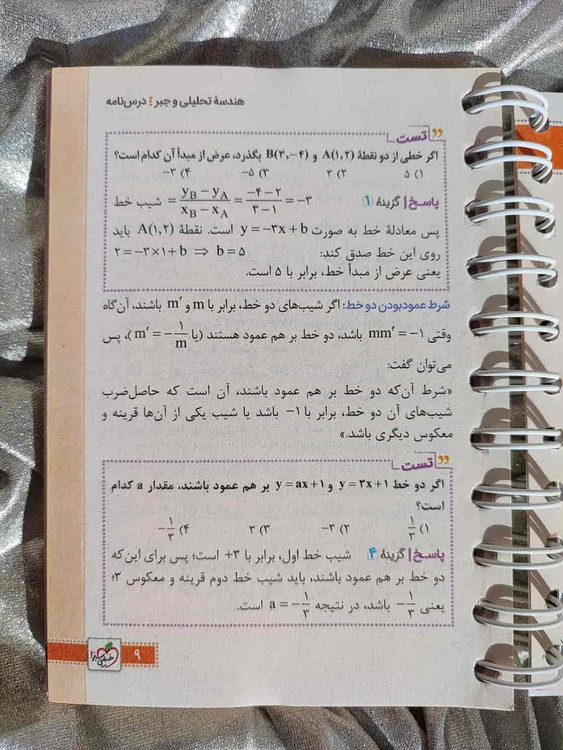 هندسهٔ تحلیلی و جبر : درس‌نامه
تست
اگر خطی از دو نقطهٔ A(۱,۲) و B(۳,−۴) بگذرد، عرض از مبدأ آن کدام است؟
۱) ۵ ۲) ۳ ۳) −۵ ۴) −۳
پاسخ | گزینهٔ ۱ شیب خط = (yB − yA)/(xB − xA) = (−۴ − ۲)/(۳ − ۱) = −۳
پس معادلهٔ خط به صورت y = −۳x + b است. نقطهٔ A(۱,۲) باید
روی این خط صدق کند: ۲ = −۳×۱ + b ⇒ b = ۵
یعنی عرض از مبدأ خط، برابر با ۵ است.
شرط عمودبودن دو خط: اگر شیب‌های دو خط، برابر با m و m′ باشند، آن‌گاه
وقتی mm′ = −۱ باشد، دو خط بر هم عمود هستند (یا m′ = −۱/m)، پس
می‌توان گفت:
«شرط آن‌که دو خط بر هم عمود باشند، آن است که حاصل‌ضرب
شیب‌های آن دو خط، برابر با −۱ باشد یا شیب یکی از آن‌ها قرینه و
معکوس دیگری باشد.»
تست
اگر دو خط y = ۳x + ۱ و y = ax + ۱ بر هم عمود باشند، مقدار a کدام
است؟
۱) ۱/۳ ۲) −۳ ۳) ۳ ۴) −۱/۳
پاسخ | گزینهٔ ۴ شیب خط اول، برابر با +۳ است؛ پس برای این‌که
دو خط بر هم عمود باشند، باید شیب خط دوم قرینه و معکوس ۳؛
یعنی −۱/۳ باشد، در نتیجه a = −۱/۳ است.
۹
خیلی سبز